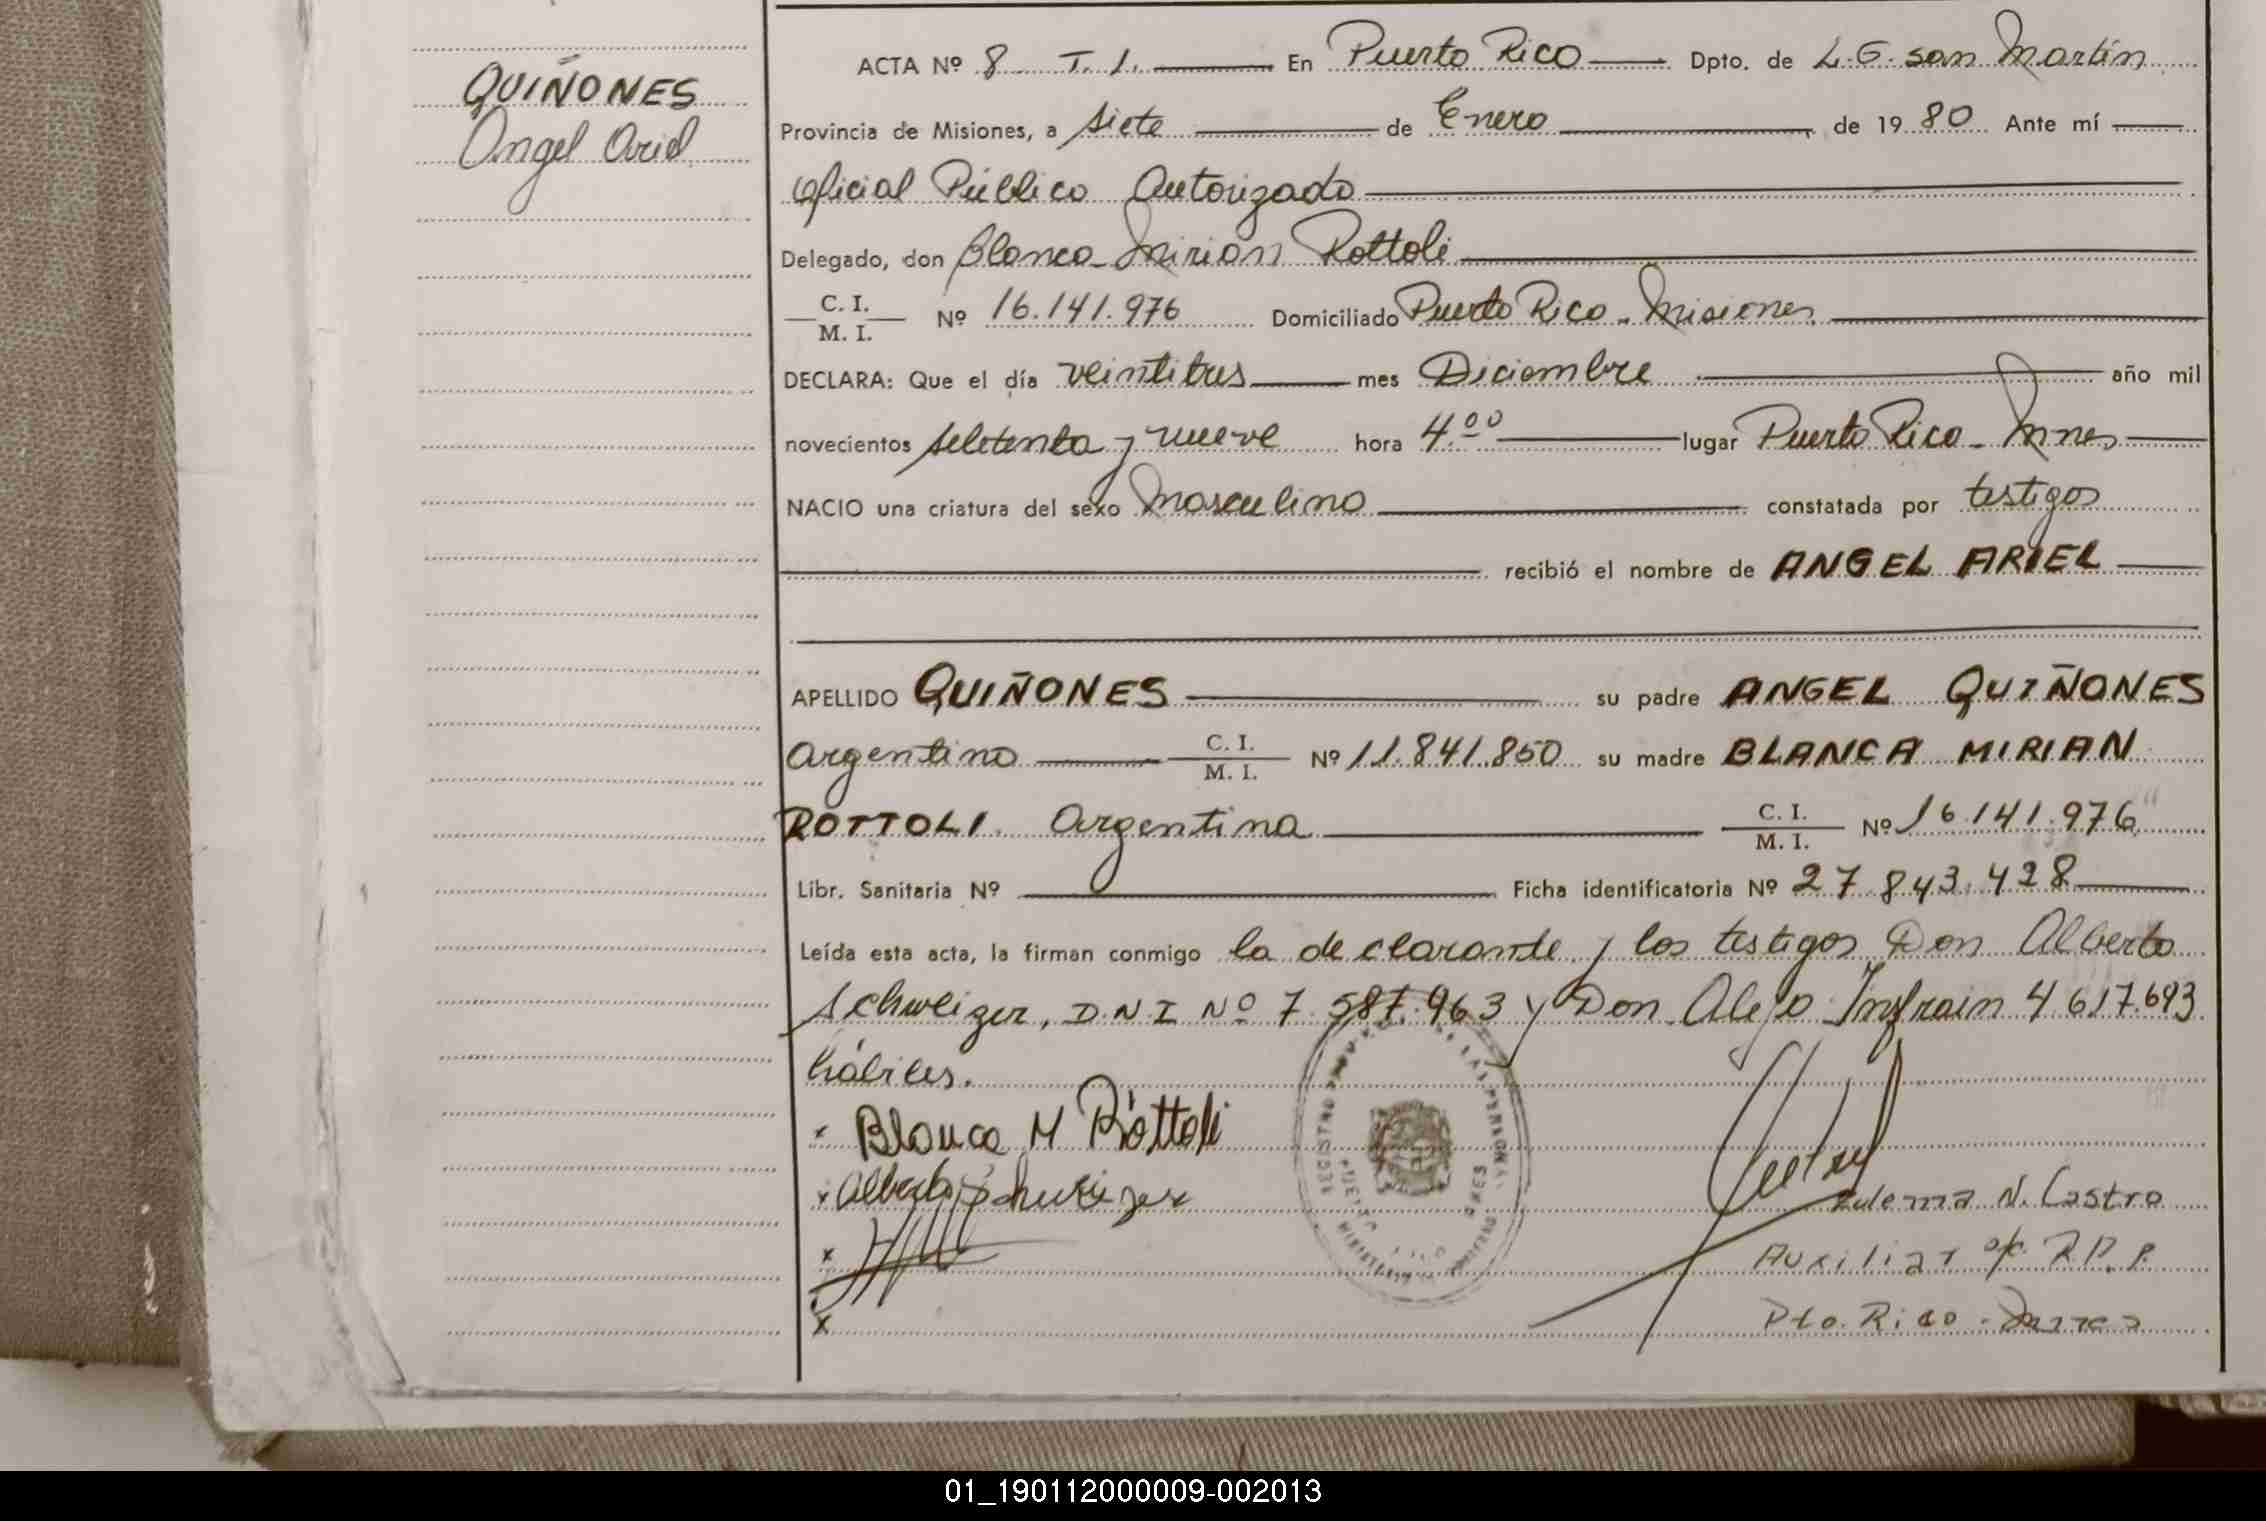 QUIÑONES
Angel Ariel
ACTA Nº 8 T. 1. En Puerto Rico Dpto. de L. G. san Martín
Provincia de Misiones, a siete de Enero de 1980 Ante mí
Oficial Público Autorizado
Delegado, don Blanca Mirian Rottoli
C. I.
M. I. Nº 16.141.976 Domiciliado Puerto Rico - Misiones
DECLARA: Que el día veintitres mes Diciembre año mil
novecientos setenta y nueve hora 4.00 lugar Puerto Rico - Mnes
NACIO una criatura del sexo Masculino constatada por testigos
recibió el nombre de ANGEL ARIEL
APELLIDO QUIÑONES su padre ANGEL QUIÑONES
argentino C. I. M. I. Nº 11.841.850 su madre BLANCA MIRIAN
ROTTOLI Argentina C. I. M. I. Nº 16.141.976
Libr. Sanitaria Nº Ficha identificatoria Nº 27.843.428
Leída esta acta, la firman conmigo la declarante y los testigos Don Alberto
Schweizer, DNI Nº 7.587.963 y Don Alejo Insfrain 4.617.693
hábiles.
x Blanca M Rottoli
x Alberto Schweizer
x
x
Zulema N. Castro
Auxiliar R.P.P.
Pto. Rico - Mnes
01_190112000009-002013